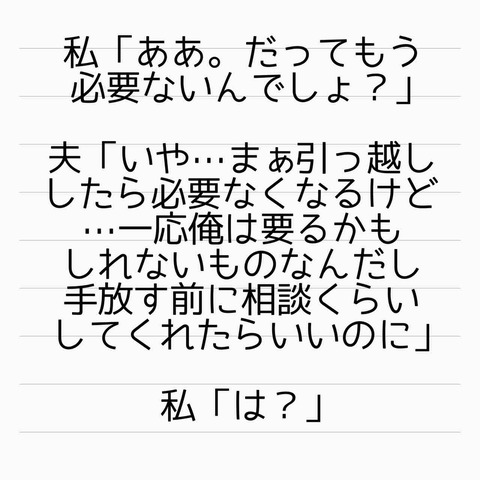 私「ああ。だってもう
必要ないんでしょ？」
夫「いや…まぁ引っ越し
したら必要なくなるけど
…一応俺は要るかも
しれないものなんだし
手放す前に相談くらい
してくれたらいいのに」
私「は？」